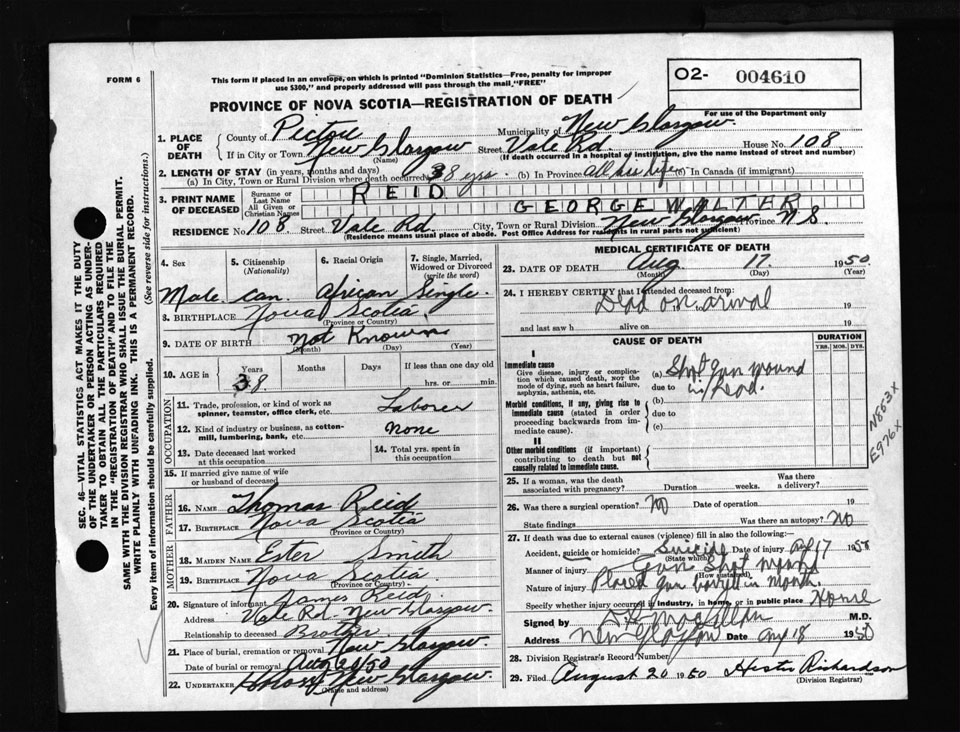 FORM 6
This form if placed in an envelope, on which is printed "Dominion Statistics—Free, penalty for improper
use $300," and properly addressed will pass through the mail, "FREE"
O2- 004610
For use of the Department only
PROVINCE OF NOVA SCOTIA—REGISTRATION OF DEATH
1. PLACE OF DEATH
County of Pictou Municipality of New Glasgow.
If in City or Town New Glasgow Street Vale Rd. House No. 108
(Name) (If death occurred in a hospital or institution, give the name instead of street and number)
2. LENGTH OF STAY (in years, months and days)
(a) In City, Town or Rural Division where death occurred 38 yrs. (b) In Province all his life (c) In Canada (if immigrant)
3. PRINT NAME OF DECEASED
Surname or Last Name REID
All Given or Christian Names GEORGE WALTER
RESIDENCE No. 108 Street Vale Rd. City, Town or Rural Division New Glasgow. Province N.S.
(Residence means usual place of abode. Post Office Address for residents in rural parts not sufficient)
4. Sex
5. Citizenship (Nationality)
6. Racial Origin
7. Single, Married, Widowed or Divorced (write the word)
Male. Can. African Single.
8. BIRTHPLACE Nova Scotia
(Province or Country)
9. DATE OF BIRTH Not Known
(Month) (Day) (Year)
10. AGE in Years Months Days If less than one day
38. hrs. or min.
OCCUPATION
11. Trade, profession, or kind of work as spinner, teamster, office clerk, etc. Laborer
12. Kind of industry or business, as cotton-mill, lumbering, bank, etc. none
13. Date deceased last worked at this occupation
14. Total yrs. spent in this occupation
15. If married give name of wife or husband of deceased
FATHER
16. NAME Thomas Reid
17. BIRTHPLACE Nova Scotia
(Province or Country)
MOTHER
18. MAIDEN NAME Ester Smith
19. BIRTHPLACE Nova Scotia.
(Province or Country)
20. Signature of informant James Reid.
Address Vale Rd. New Glasgow.
Relationship to deceased Brother
21. Place of burial, cremation or removal New Glasgow.
Date of burial or removal Aug 20/50
22. UNDERTAKER New Glasgow.
(Name and address)
MEDICAL CERTIFICATE OF DEATH
23. DATE OF DEATH Aug 17. 1950
(Month) (Day) (Year)
24. I HEREBY CERTIFY that I attended deceased from:
Dead on arrival 19
and last saw h alive on 19
CAUSE OF DEATH
DURATION
YRS. MOS. DYS.
I
Immediate cause
Give disease, injury or complication which caused death, NOT the mode of dying, such as heart failure, asphyxia, asthenia, etc.
(a) Shot gun wound
due to in head.
Morbid conditions, if any, giving rise to immediate cause (stated in order proceeding backwards from immediate cause).
(b)
due to
(c)
II
Other morbid conditions (if important) contributing to death but not causally related to immediate cause.
N853X
E976X
25. If a woman, was the death associated with pregnancy? Duration weeks. Was there a delivery?
26. Was there a surgical operation? No Date of operation 19
State findings Was there an autopsy? No
27. If death was due to external causes (violence) fill in also the following:
Accident, suicide or homicide? Suicide Date of injury Aug 17 1950
(State which)
Manner of injury Gun Shot wound
(How sustained)
Nature of injury Placed gun in mouth.
Specify whether injury occurred in industry, in home, or in public place Home
Signed by M.D.
Address New Glasgow Date Aug 18 1950
28. Division Registrar's Record Number
29. Filed August 20 1950 Hester Richardson
(Division Registrar)
SEC. 46—VITAL STATISTICS ACT MAKES IT THE DUTY
OF THE UNDERTAKER OR PERSON ACTING AS UNDER-
TAKER TO OBTAIN ALL THE PARTICULARS REQUIRED
IN THE "REGISTRATION OF DEATH" AND TO FILE THE
SAME WITH THE DIVISION REGISTRAR WHO SHALL ISSUE THE BURIAL PERMIT.
WRITE PLAINLY WITH UNFADING INK. THIS IS A PERMANENT RECORD.
Every item of information should be carefully supplied.
(See reverse side for instructions.)